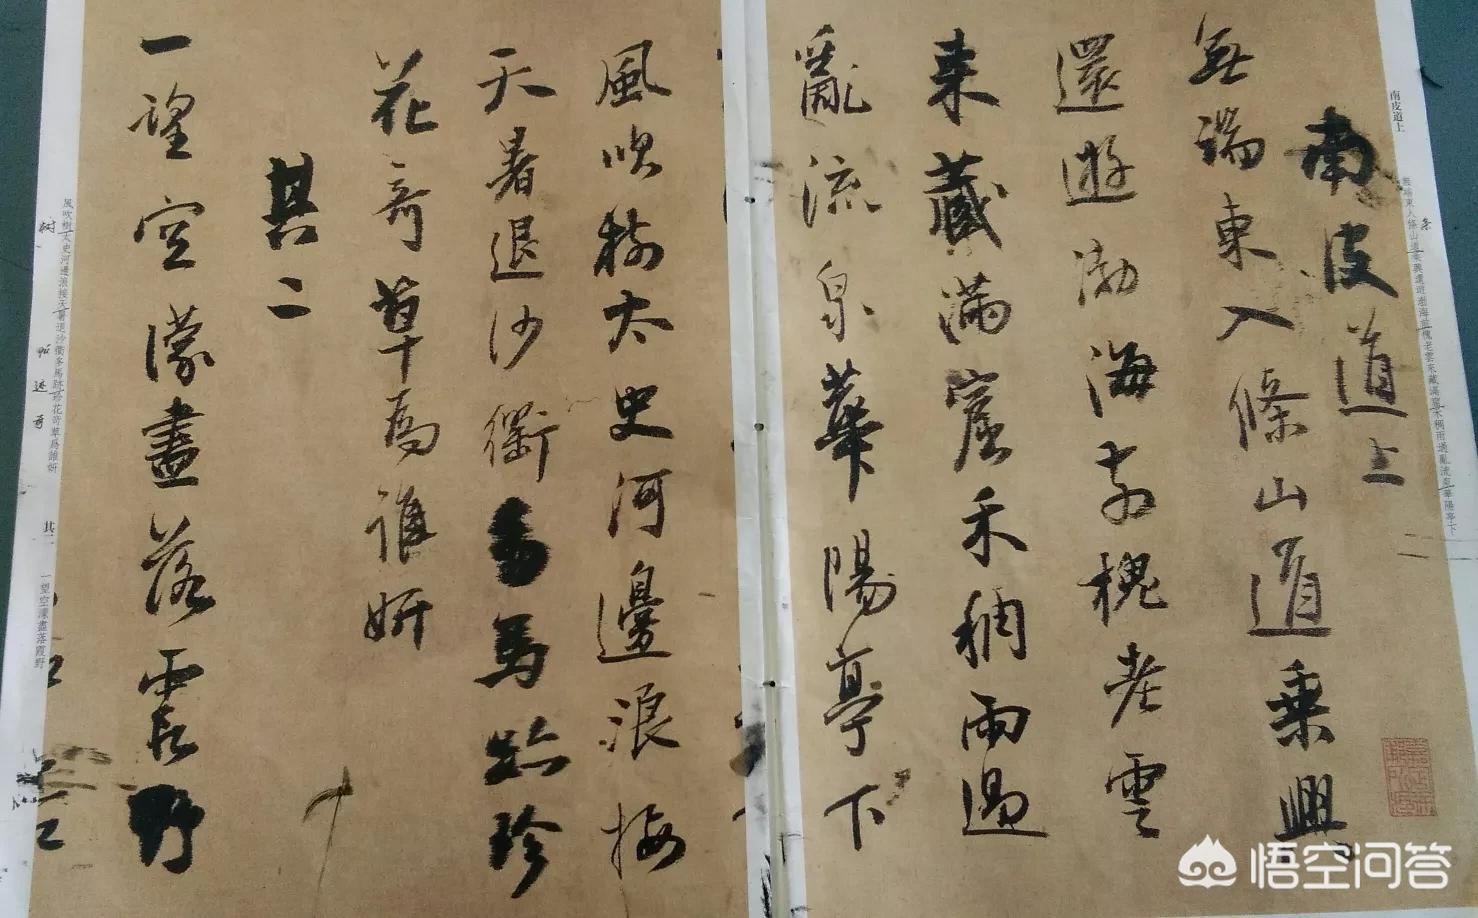 南皮道上
無端東入條山道乗興
還遊渤海前槐老雲
来藏滿窟禾稠雨過
亂流泉華陽亭下
南皮道上
無端東入條山道乗興還遊渤海前槐老雲来藏滿窟禾稠雨過亂流泉華陽亭下
風吹樹太史河邊浪接
天暑退沙衢多馬跡珍
花奇草為誰妍
其二
一望空濛盡落霞野
風吹樹太史河邊浪接天暑退沙衢多馬跡珍花奇草為誰妍
其二
一望空濛盡落霞野
树
迹
奇
悟空问答